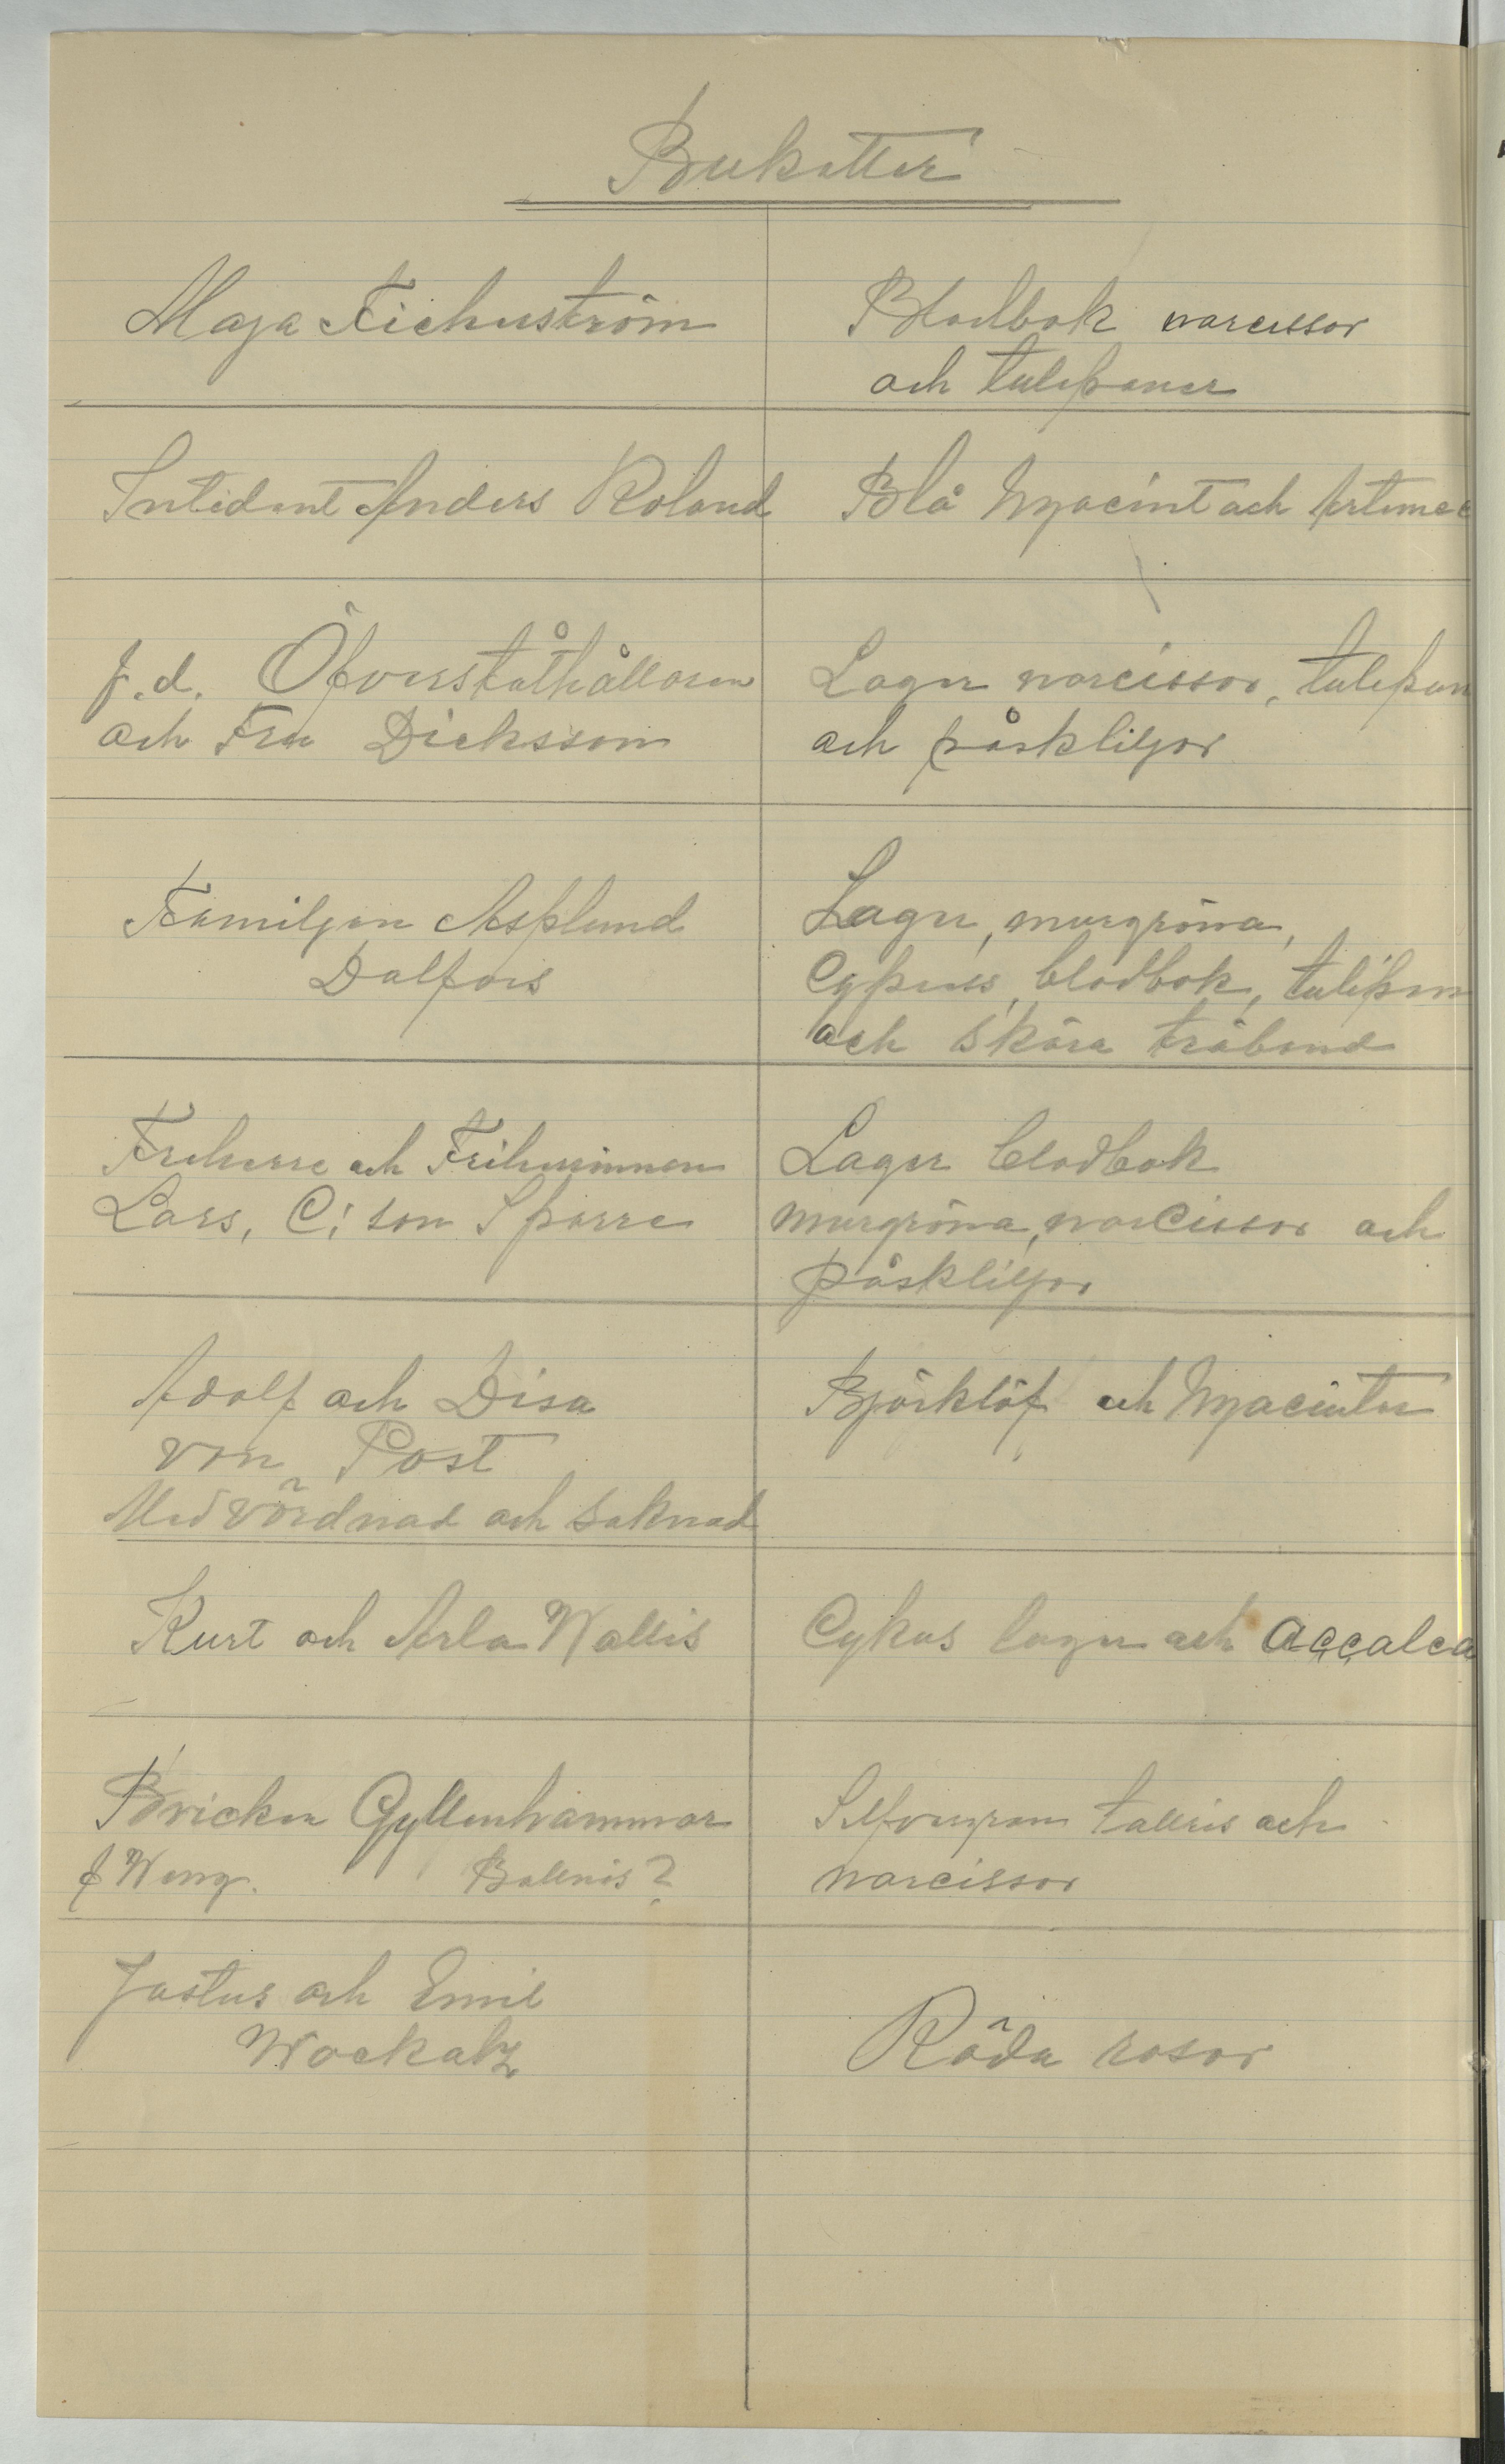 Buketter
Maja Fichuström
Blodbok narcissor
och tulepaner
Intedent Anders Roland
Blå hyacint och
f.d. Öfverståthållaren
och Fru Dicksson
Lager narcissor, tulepan
och påskliljor
Familjen Asplund
Dalfors
Lager, murgröna,
Cypress, blodbok, tulipan
och skära tråband
Friherre och Friherrinnan
Lars, C:son Sparre
Lager blodbok
murgröna, narcissor och
påskliljor
Adolf och Disa
von Post
Med vördnad och saknad
Björklöf och hyacinter
Kurt och Arla Wallis
Cykus lager och accalea
Bricken Gyllenhammar
f Weng. Ballnis?
Silfvergran tallris och
narcissor
Justus och Emil
Wockatz
Röda rosor